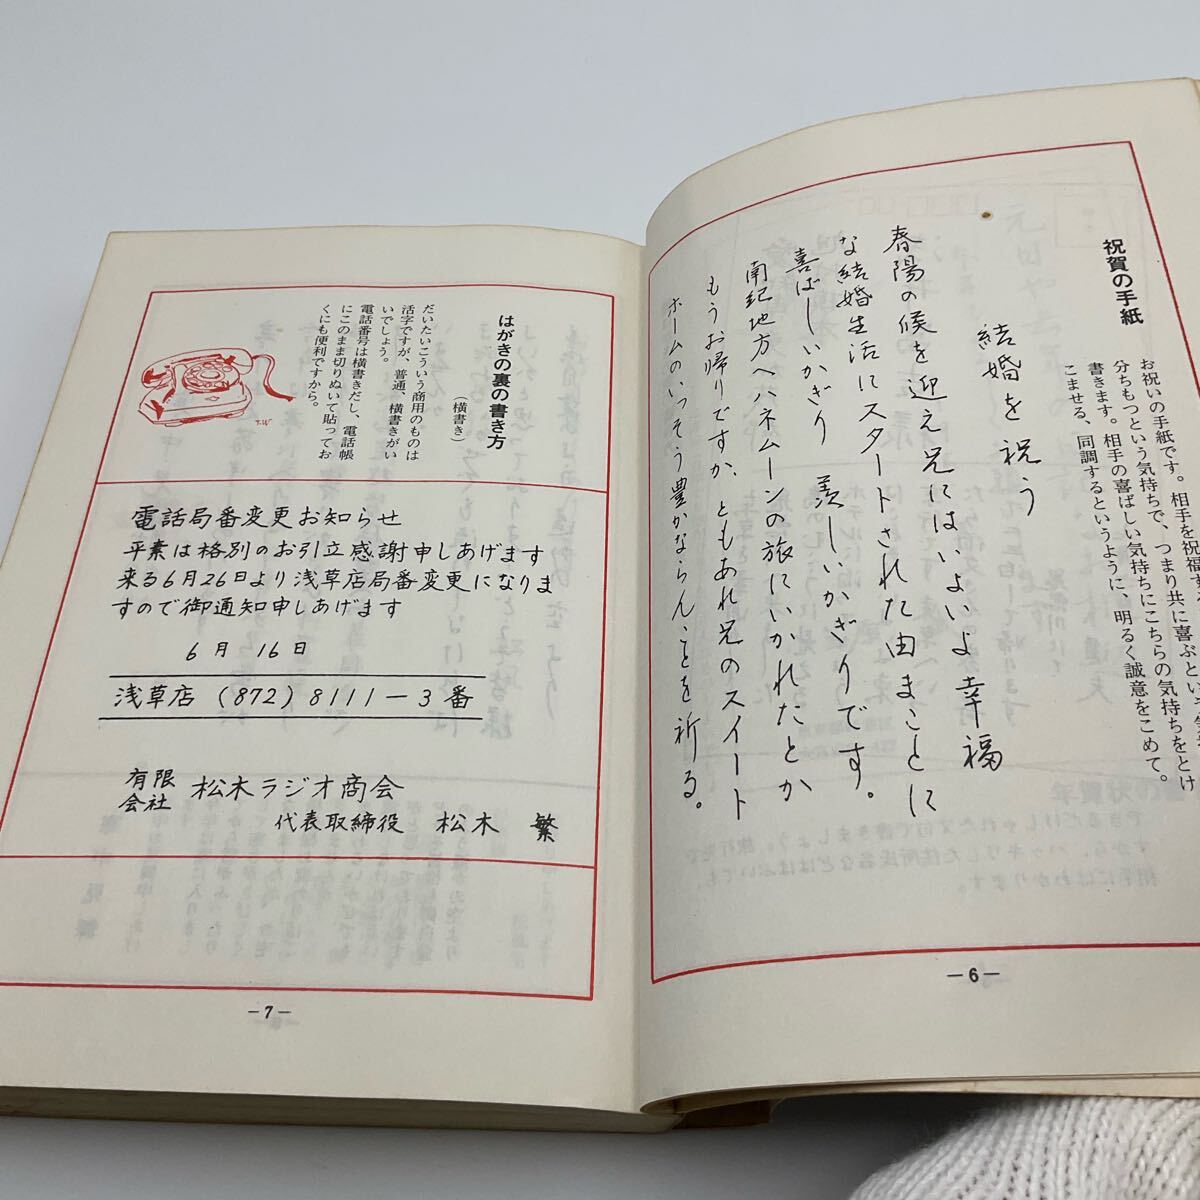 祝賀の手紙
お祝いの手紙です。相手を祝福する
分ちもつという気持ちで、つまり共に喜ぶという
書きます。相手の喜ばしい気持ちにこちらの気持ちをとけ
こませる、同調するというように、明るく誠意をこめて。
結婚を祝う
春陽の候を迎え兄にはいよいよ幸福
な結婚生活にスタートされた由まことに
喜ばしいかぎり 羨しいかぎりです。
南紀地方へハネムーンの旅にいかれたとか
もうお帰りですか、ともあれ兄のスイート
ホームのいっそう豊かならんことを祈る。
—6—
はがきの裏の書き方
(横書き)
だいたいこういう商用のものは
活字ですが、普通、横書きがい
いでしょう。
電話番号は横書きだし、電話帳
にこのまま切りぬいて貼ってお
くにも便利ですから。
T.W
電話局番変更お知らせ
平素は格別のお引立感謝申しあげます
来る6月26日より浅草店局番変更になりま
すので御通知申しあげます
6月 16日
浅草店 (872) 8111－3番
有限会社 松木ラジオ商会
代表取締役 松木 繁
—7—